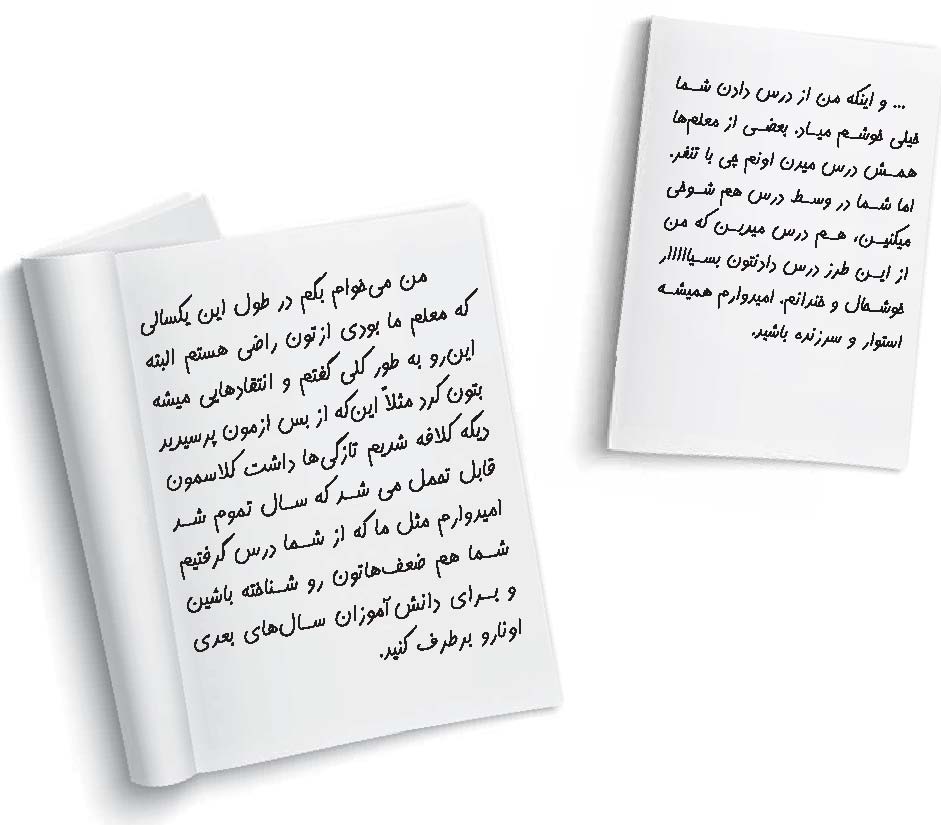 ... و اینکه من از درس دادن شما
خیلی خوشم میاد. بعضی از معلم‌ها
همش درس میدن اونم چی با تنفر.
اما شما در وسط درس هم شوخی
میکنین، هم درس میدین که من
از این طرز درس دادنتون بسیااااار
خوشحال و خندانم. امیدوارم همیشه
استوار و سرزنده باشید.
من می‌خوام بگم در طول این یکسالی
که معلم ما بودی ازتون راضی هستم البته
این‌رو به طور کلی گفتم و انتقادهایی میشه
بتون کرد مثلاً این‌که از بس ازمون پرسیدید
دیگه کلافه شدیم تازگی‌ها داشت کلاسمون
قابل تحمل می شد که سال تموم شد
امیدوارم مثل ما که از شما درس گرفتیم
شما هم ضعف‌هاتون رو شناخته باشین
و برای دانش‌آموزان سال‌های بعدی
اونارو برطرف کنید.